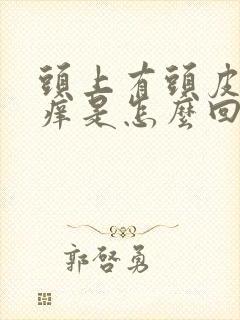 頭上有頭皮
痒是怎麼回
郭啓勇